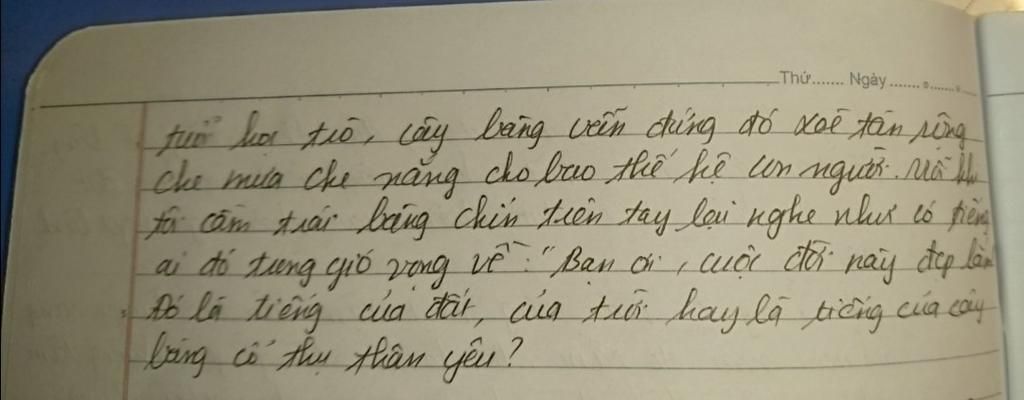 Thứ....... Ngày.............
tuổi học trò, cây bàng vẫn đứng đó xoè tán rộng
che mưa che nắng cho bao thế hệ con người. Mỗi khi
tôi cầm trái bàng chín trên tay lại nghe như có tiếng
ai đó trong gió vọng về: "Bạn ơi, cuộc đời này đẹp lắm
Đó là tiếng của đất, của trời hay là tiếng của cây
bàng cổ thụ thân yêu?